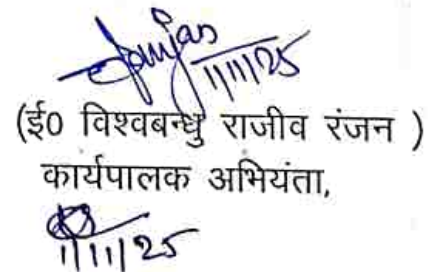 1/11/25
(ई0 विश्वबन्धु राजीव रंजन )
कार्यपालक अभियंता,
1/11/25